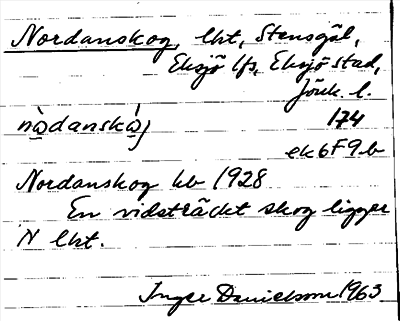 Nordanskog, lht, Stensgäl,
Eksjö lfs, Eksjö stad,
Jönk. l.
nò̱danskà̱j 174
ek 6F9b
Nordanskog kb 1928
En vidsträckt skog ligger
N lht.
Inger Danielsson 1963